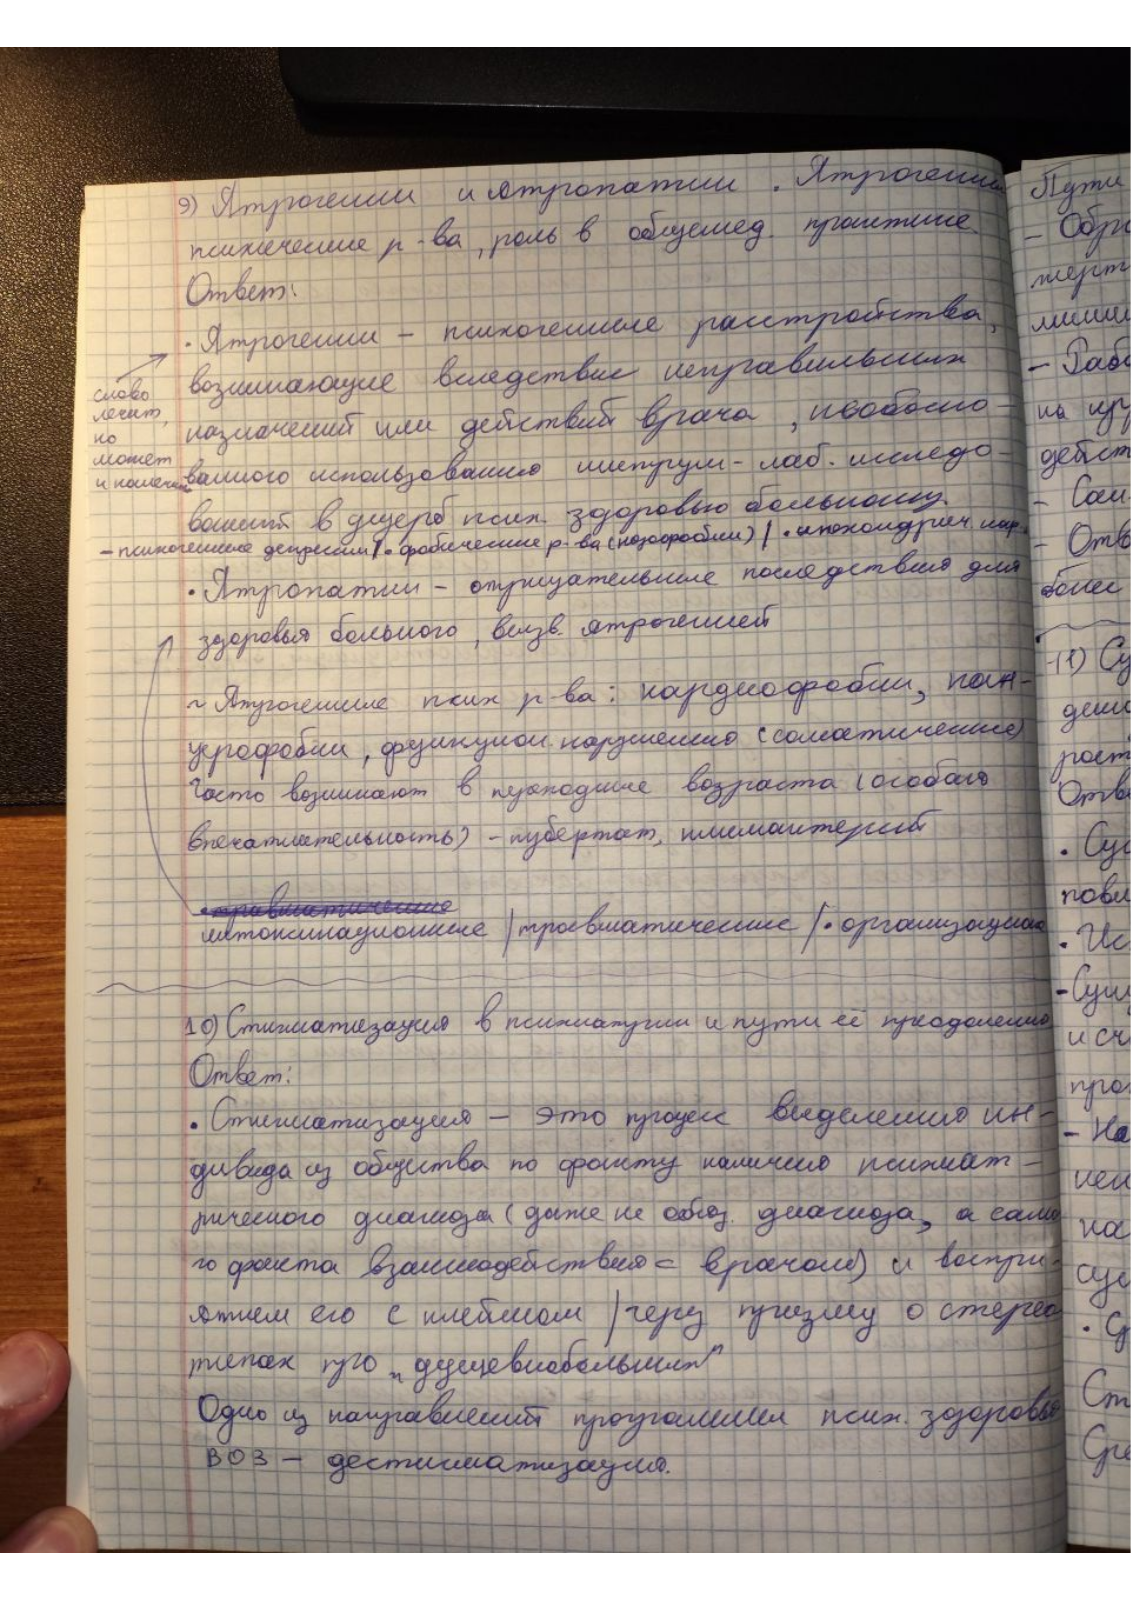 9) Ятрогении и ятропатии. Ятрогении
психические р-ва, роль в общемед. практике.
Ответ:
· Ятрогении – психогенные расстройства,
возникающие вследствие неправильных
назначений или действий врача, необосно-
ванного использования инструм-лаб. исследо-
ваний в ущерб псих. здоровью больному.
слово
лечит,
но
может
и калечить
- психогенные депрессии / · фобические р-ва (нозофобии) / · ипохондрич. нар.
· Ятропатии – отрицательные последствия для
здоровья больного, вызв. ятрогенией
~ Ятрогенные псих р-ва: кардиофобии, кан-
церофобии, функцион. нарушения (соматические)
Часто возникают в переходные возраста (особая
впечатлительность) – пубертат, климактерий
· травматические
интоксикационные / травматические / · организацион
10) Стигматизация в психиатрии и пути её преодоления
Ответ:
· Стигматизация – это процесс выделения ин-
дивида из общества по факту наличия психиат-
рического диагноза (даже не обяз. диагноза, а само
го факта взаимодействия с врачом) и воспри-
ятием его с клеймом / через призму о стерео
типах про „душевнобольных"
Одно из направлений программы псих. здоровья
ВОЗ – дестигматизация.
Пути
- Обр
жерт
- Раб
на кр
дейст
- Сам
- Отв
более
11) Су
рост
Отве
· Сур
повы
· Ис
- Суи
и сч
про
- На
на
суи
· С
Ст
Сре